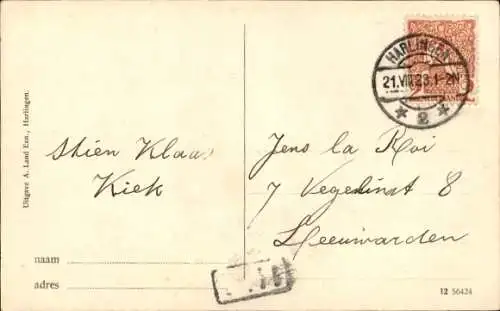 HARLINGEN
21.VIII.23.1-2N
2
Stien Klaas
Kiek
Jens la Roi
7 Vegelinst 8
Leeuwarden
naam
adres
Uitgave A. Land Ezn., Harlingen.
12 56424